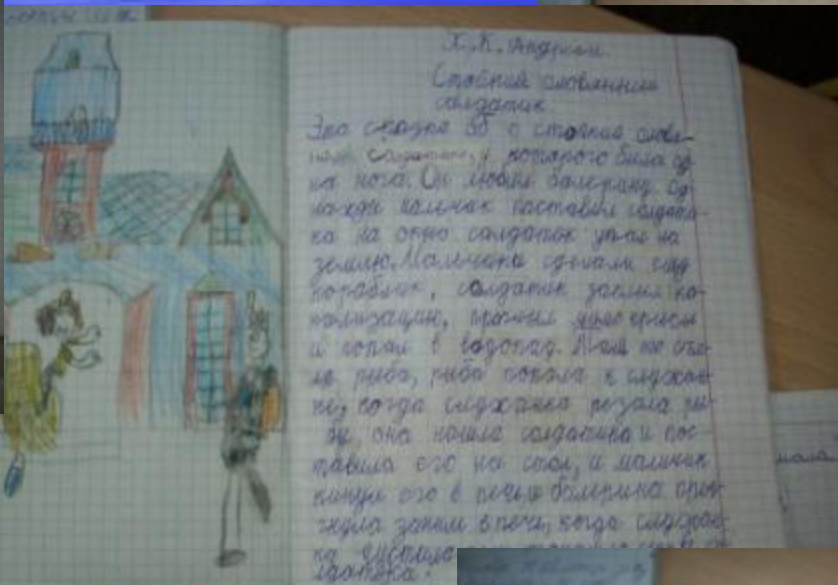 Х. К. Андрсен
Стойкий оловянный
солдатик.
Эта сказка об о стойкий олове-
ном солдатике, у которого была од
на нога. Он любил балерину од
нажды мальчик поставил солдати-
ка на окно солдатик упал на
землю. Мальчики сделали ему
кораблик, солдатик заплыл ка-
нализацию, проплыл крысы
и попал в водопад. Там его съе-
ла рыба, рыба попала к служан
ке, когда служанка резала ры-
бу, она нашла солдатика и пос-
тавила его на стол, и мальчик
кинул его в печь и балерина пры
гнула заним в печи, когда служан-
ка